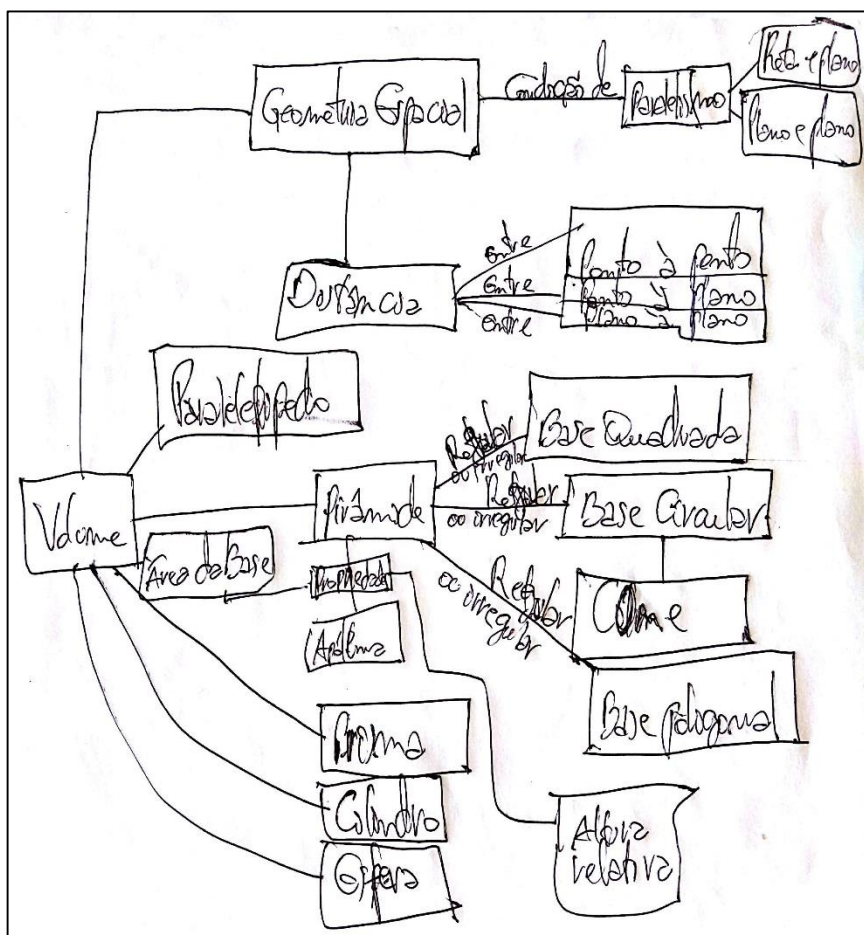 Geometria Espacial
Condição de
Paralelismo
Reta e plano
Plano e plano
Distância
entre
entre
entre
Ponto à ponto
Ponto à plano
plano à plano
Paralelepípedo
Volume
Pirâmide
Regular
ou irregular
Base Quadrada
Regular
ou irregular
Base Circular
Cone
Regular
ou irregular
Base poligonal
Área da Base
Propriedade
Apótema
Prisma
Cilindro
Esfera
Altura
relativa